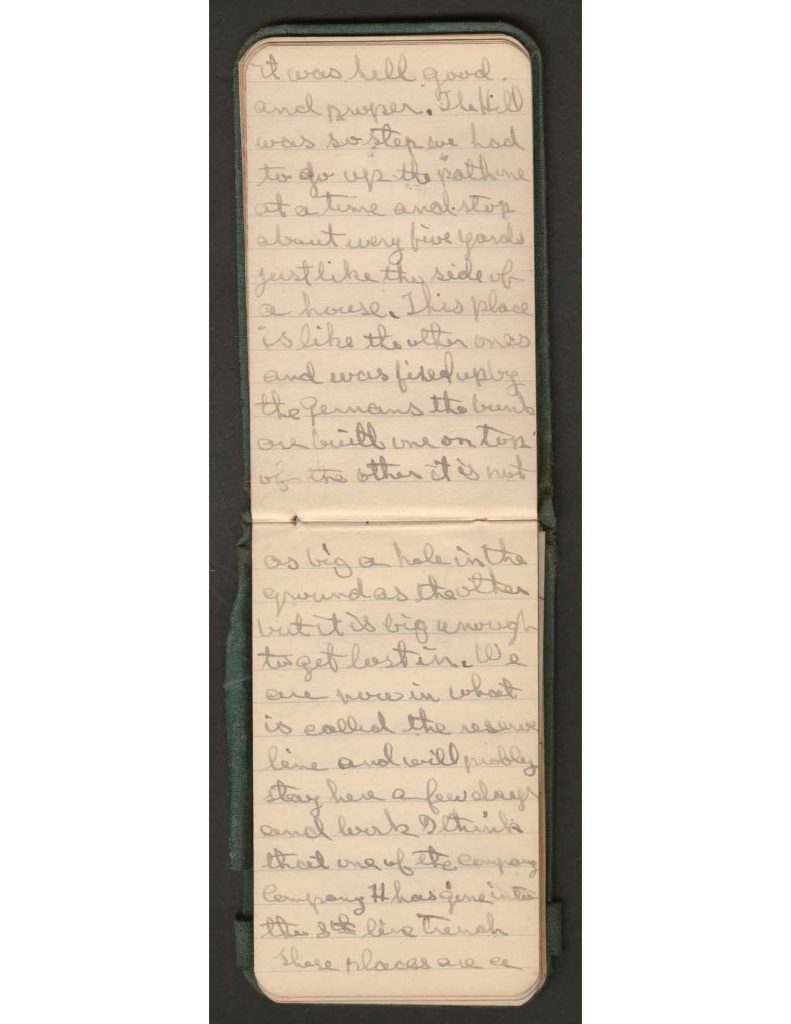 it was hell good
and proper. The Hill
was so step we had
to go up the path one
at a time and stop
about every five yards
just like the side of
a house. This place
is like the other ones
and was fixed up by
the Germans the bunks
are built one on top
of the other it is not
as big a hole in the
ground as the other
but it is big enough
to get lost in. We
are now in what
is called the reserve
line and will probly
stay here a few days
and work I think
that one of the company
Company H has gone into
the 3rd line Trench
These places are a